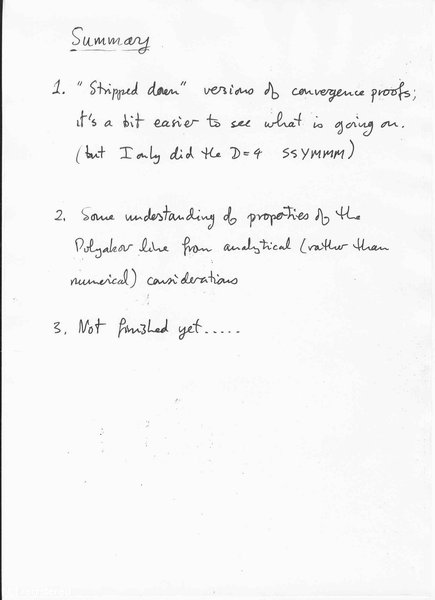 Summary
1. "Stripped down" versions of convergence proofs;
it's a bit easier to see what is going on.
(but I only did the D=4 SSYMMM)
2. Some understanding of properties of the
Polyakov line from analytical (rather than
numerical) considerations
3. Not finished yet.....